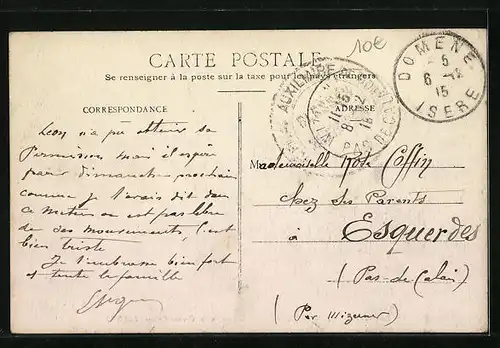 10€
CARTE POSTALE
Se renseigner à la poste sur la taxe pour les pays étrangers
DOMENE
5
6 - 12
15
ISERE
AUXILIAIRE
8
15
PAS DE C
CORRESPONDANCE
ADRESSE
Léon n'a pu obtenir sa
Permission mais il espère
pour dimanche prochain
comme je l'avais dit dans
ce métier on est pas libre
de ses mouvements, c'est
bien triste
Je t'embrasse bien fort
et toute la famille
Mademoiselle Rose Coffin
chez ses Parents
à Esquerdes
(Pas-de-Calais)
(Par Wizernes)